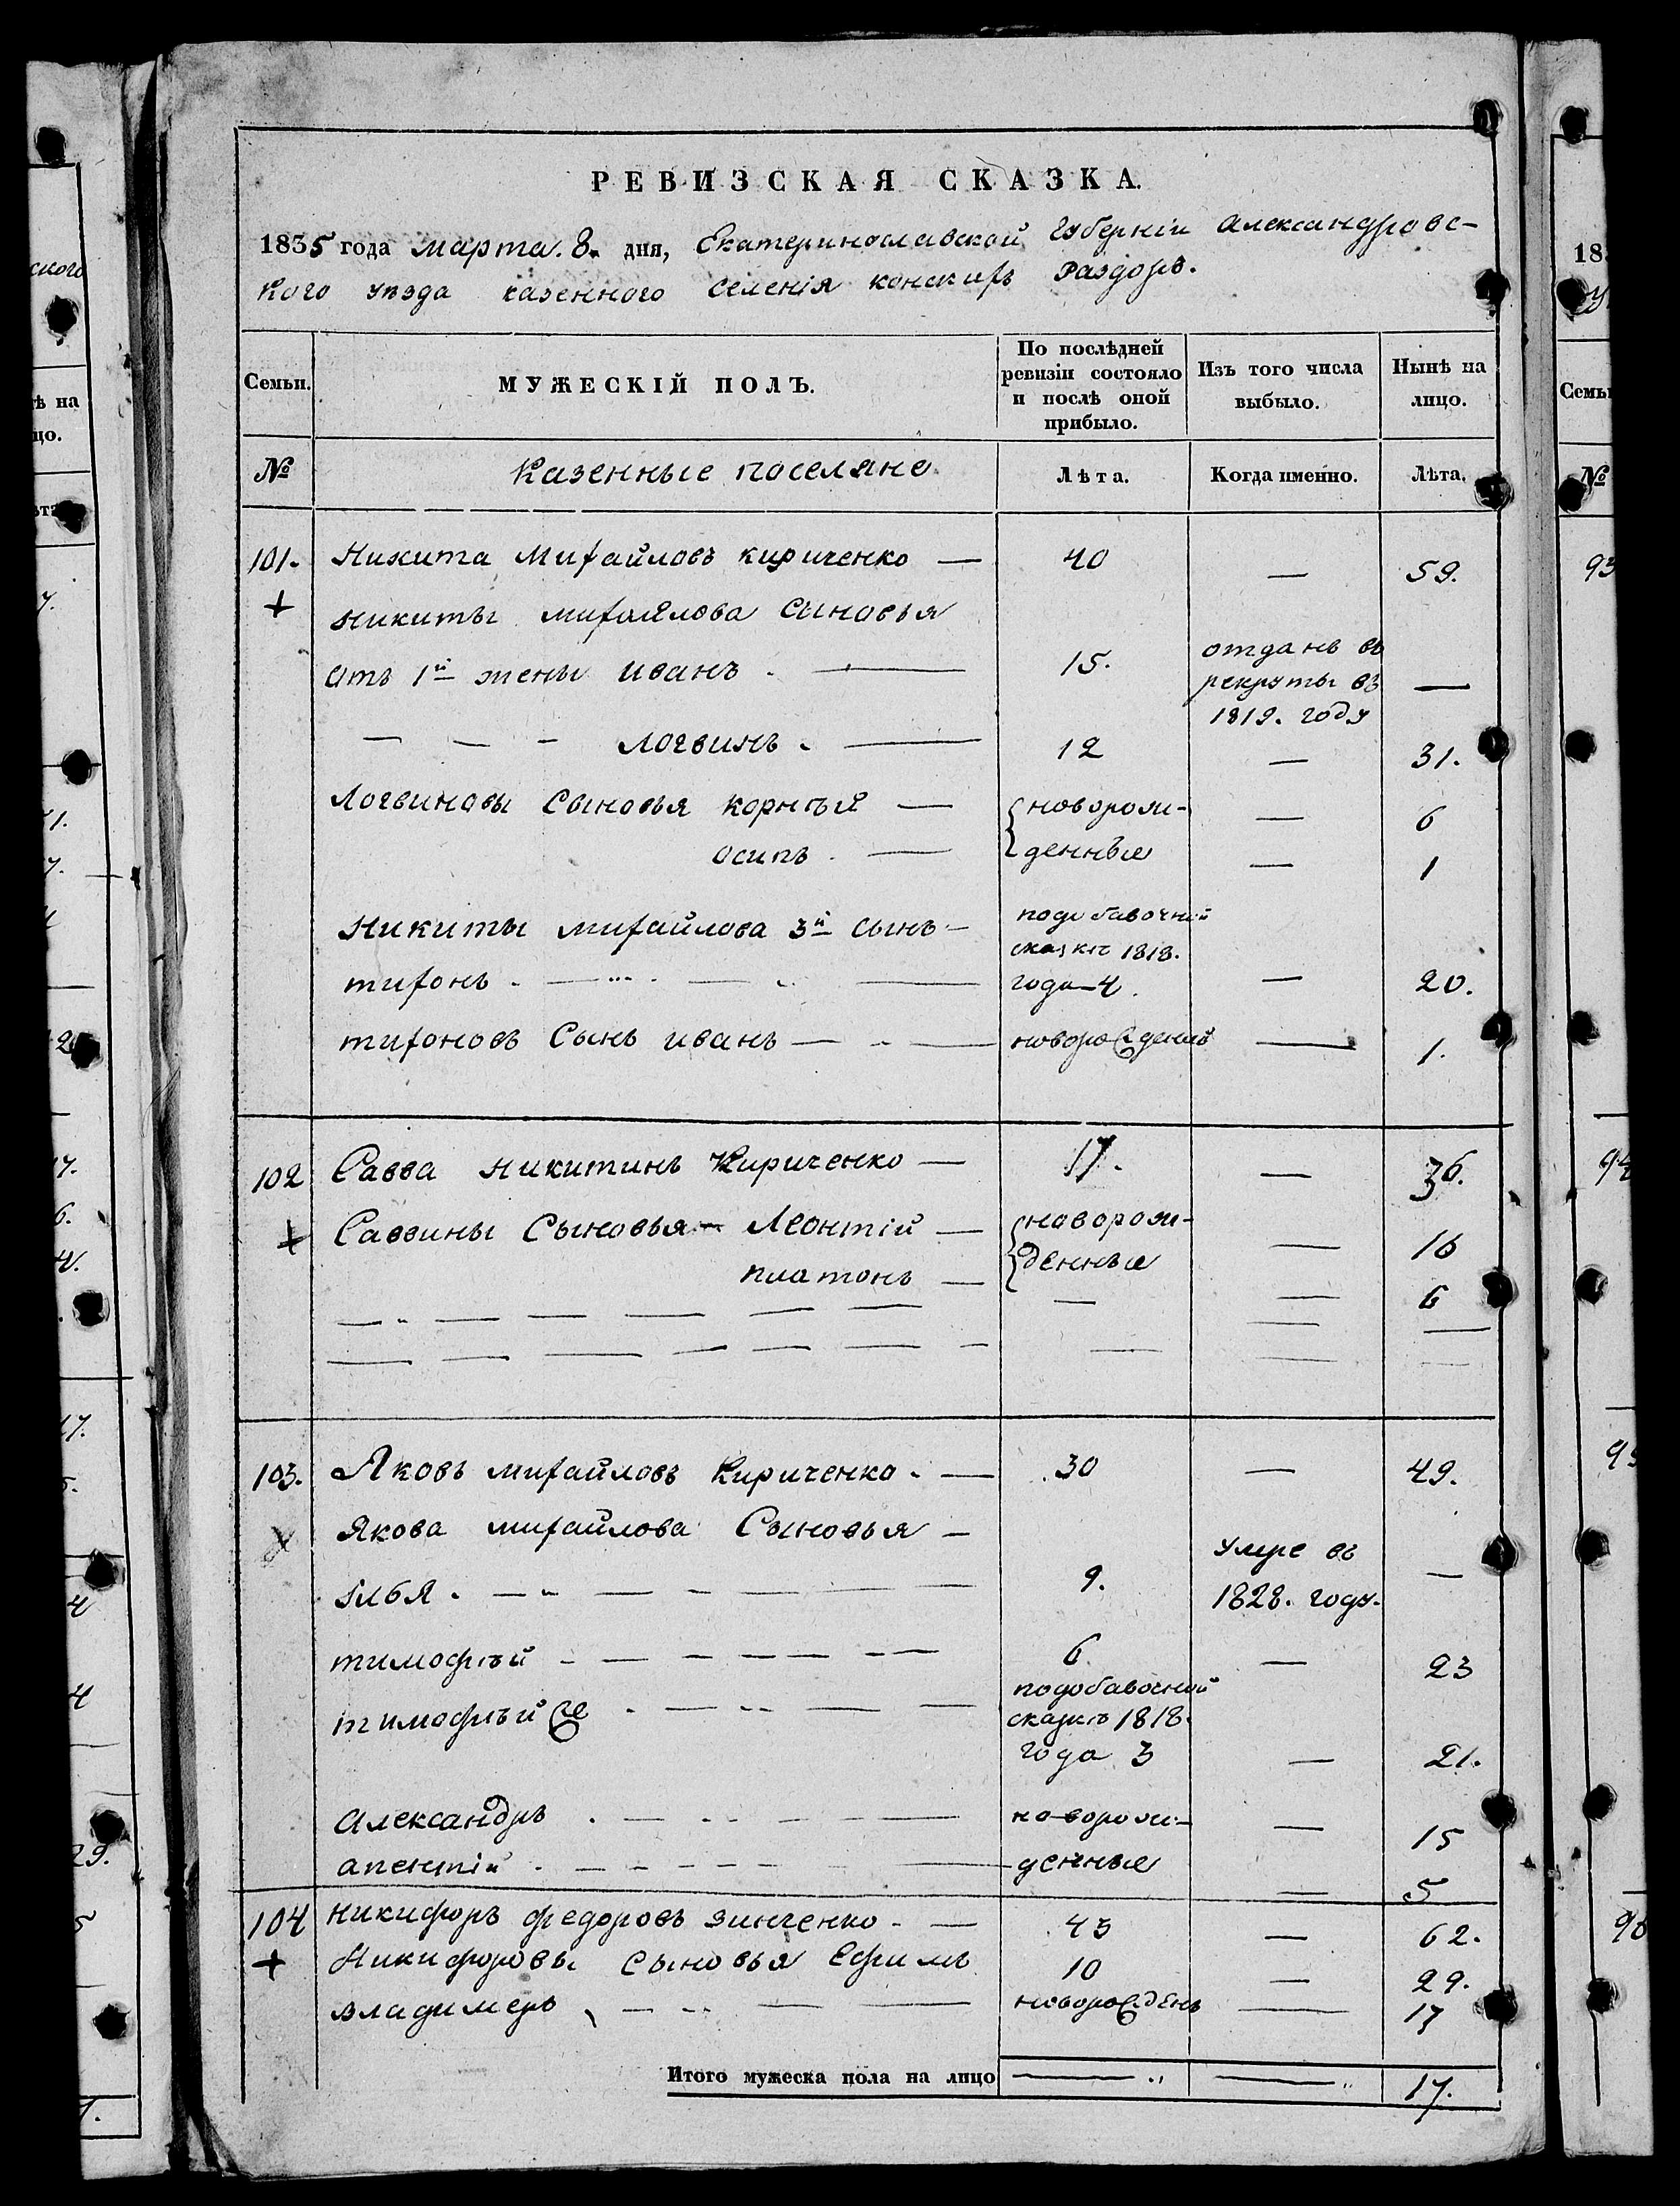 РЕВИЗСКАЯ СКАЗКА.
1835 года марта. 8. дня, Екатеринославской Губерніи Александровс-
кого уѣзда казенного селенія конскихъ Раздоръ.
Семьи.
МУЖЕСКІЙ ПОЛЪ.
По послѣдней ревизіи состояло и послѣ оной прибыло.
Изъ того числа выбыло.
Нынѣ на лицо.
№ Казенные поселяне. Лѣта. Когда именно. Лѣта.
101. Никита Михайловъ кириченко — 40 — 59.
никиты михайлова сыновья
отъ 1й жены иванъ. — 15. отданъ въ рекруты въ 1819. году —
— — — логвинъ. — 12 — 31.
Логвиновы сыновья корнѣй — {новорож- — 6
осипъ. — денные — 1
Никиты михайлова 3й сынъ — подобавочной сказкѣ 1818.
тихонъ. — года 4. — 20.
тихоновъ сынъ иванъ — новорожденный — 1.
102 Савва никитинъ Кириченко — 17. — 36.
Саввины сыновья — Леонтій — {новорож- — 16
платонъ — денные — 6
103. Яковъ михайловъ Кириченко. — 30 — 49.
Якова михайлова Сыновья —
илья. — 9. умре въ 1828. году. —
тимофѣй — 6 — 23
тимофѣй же — подобавочной сказкѣ 1818. года 3 — 21.
Александръ. — новорож- — 15
апентій. — денные — 5
104 никифоръ федоровъ зинченко. — 43 — 62.
Никифоровы сыновья Ефимъ 10 — 29.
владимеръ, — новорожденъ — 17
Итого мужеска пола на лицо — — 17.